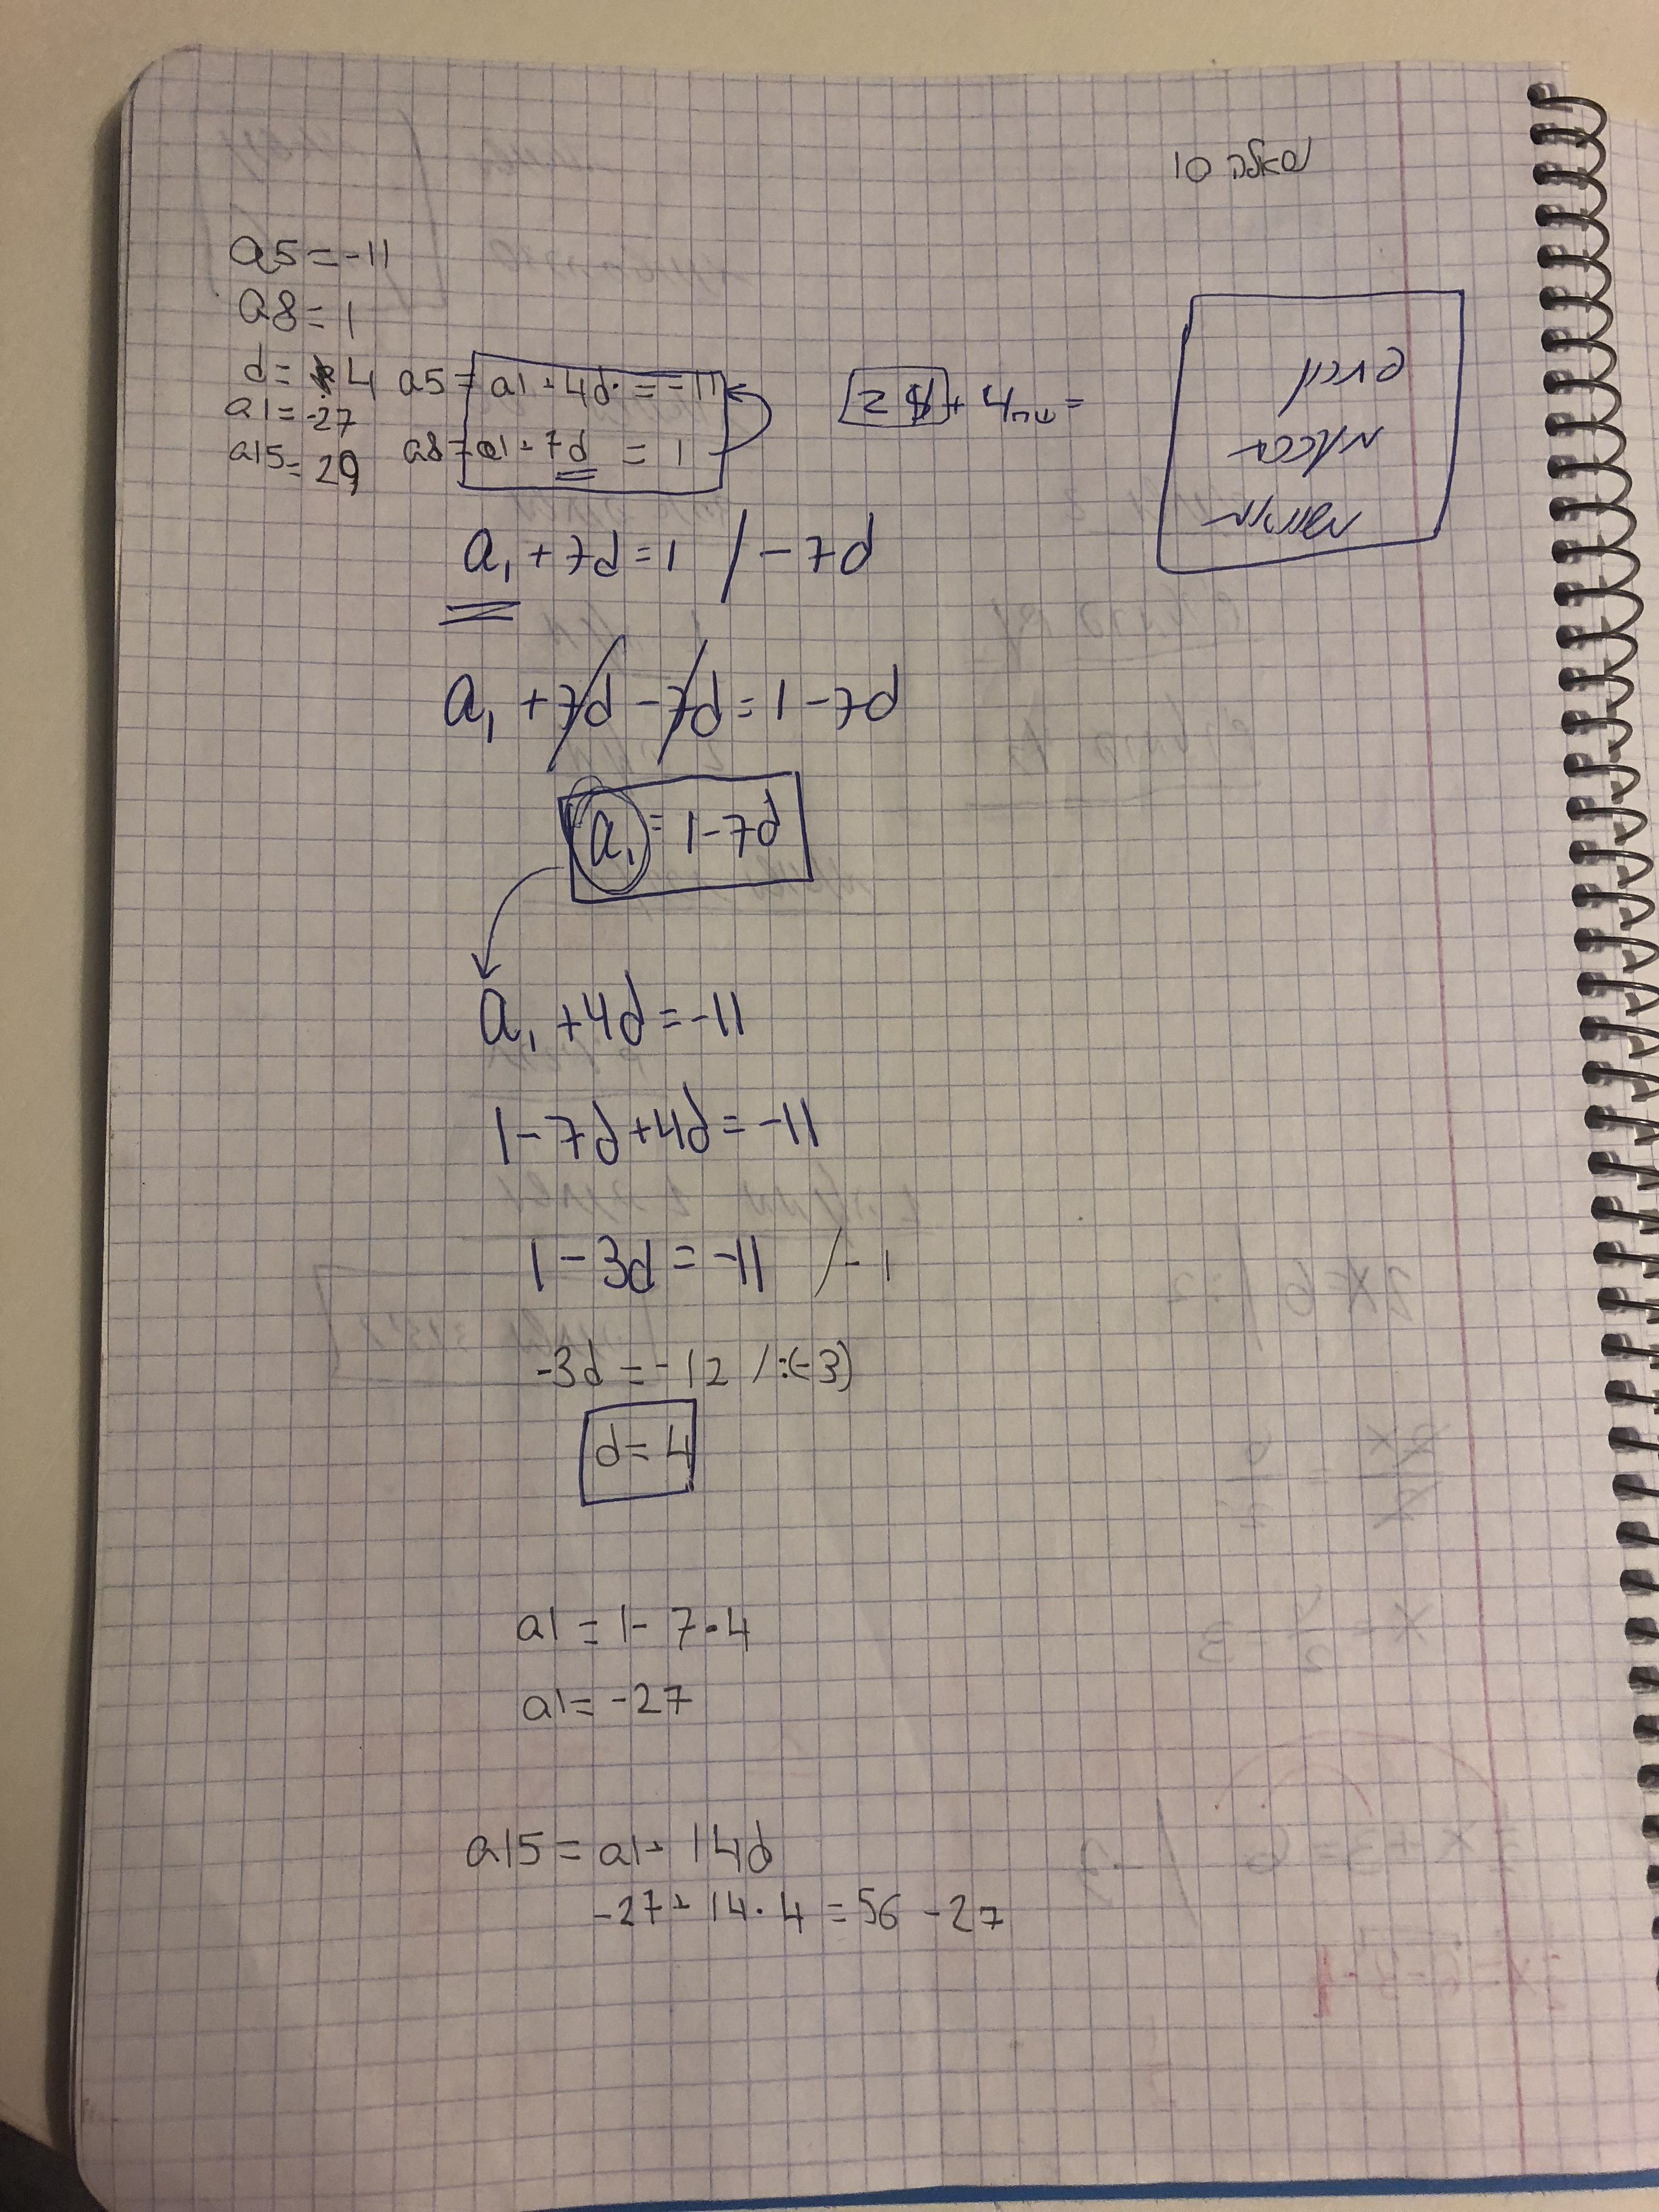 שאלה 10
a5=-11
a8=1
d=4
a1=-27
a15=29
a5=a1+4d=-11
a8=a1+7d=1
a₁+7d=1 /-7d
a₁+7d-7d=1-7d
a₁=1-7d
a₁+4d=-11
1-7d+4d=-11
1-3d=-11 /-1
-3d=-12 /:(-3)
d=4
a1=1-7·4
a1=-27
a15=a1+14d
-27+14·4=56-27